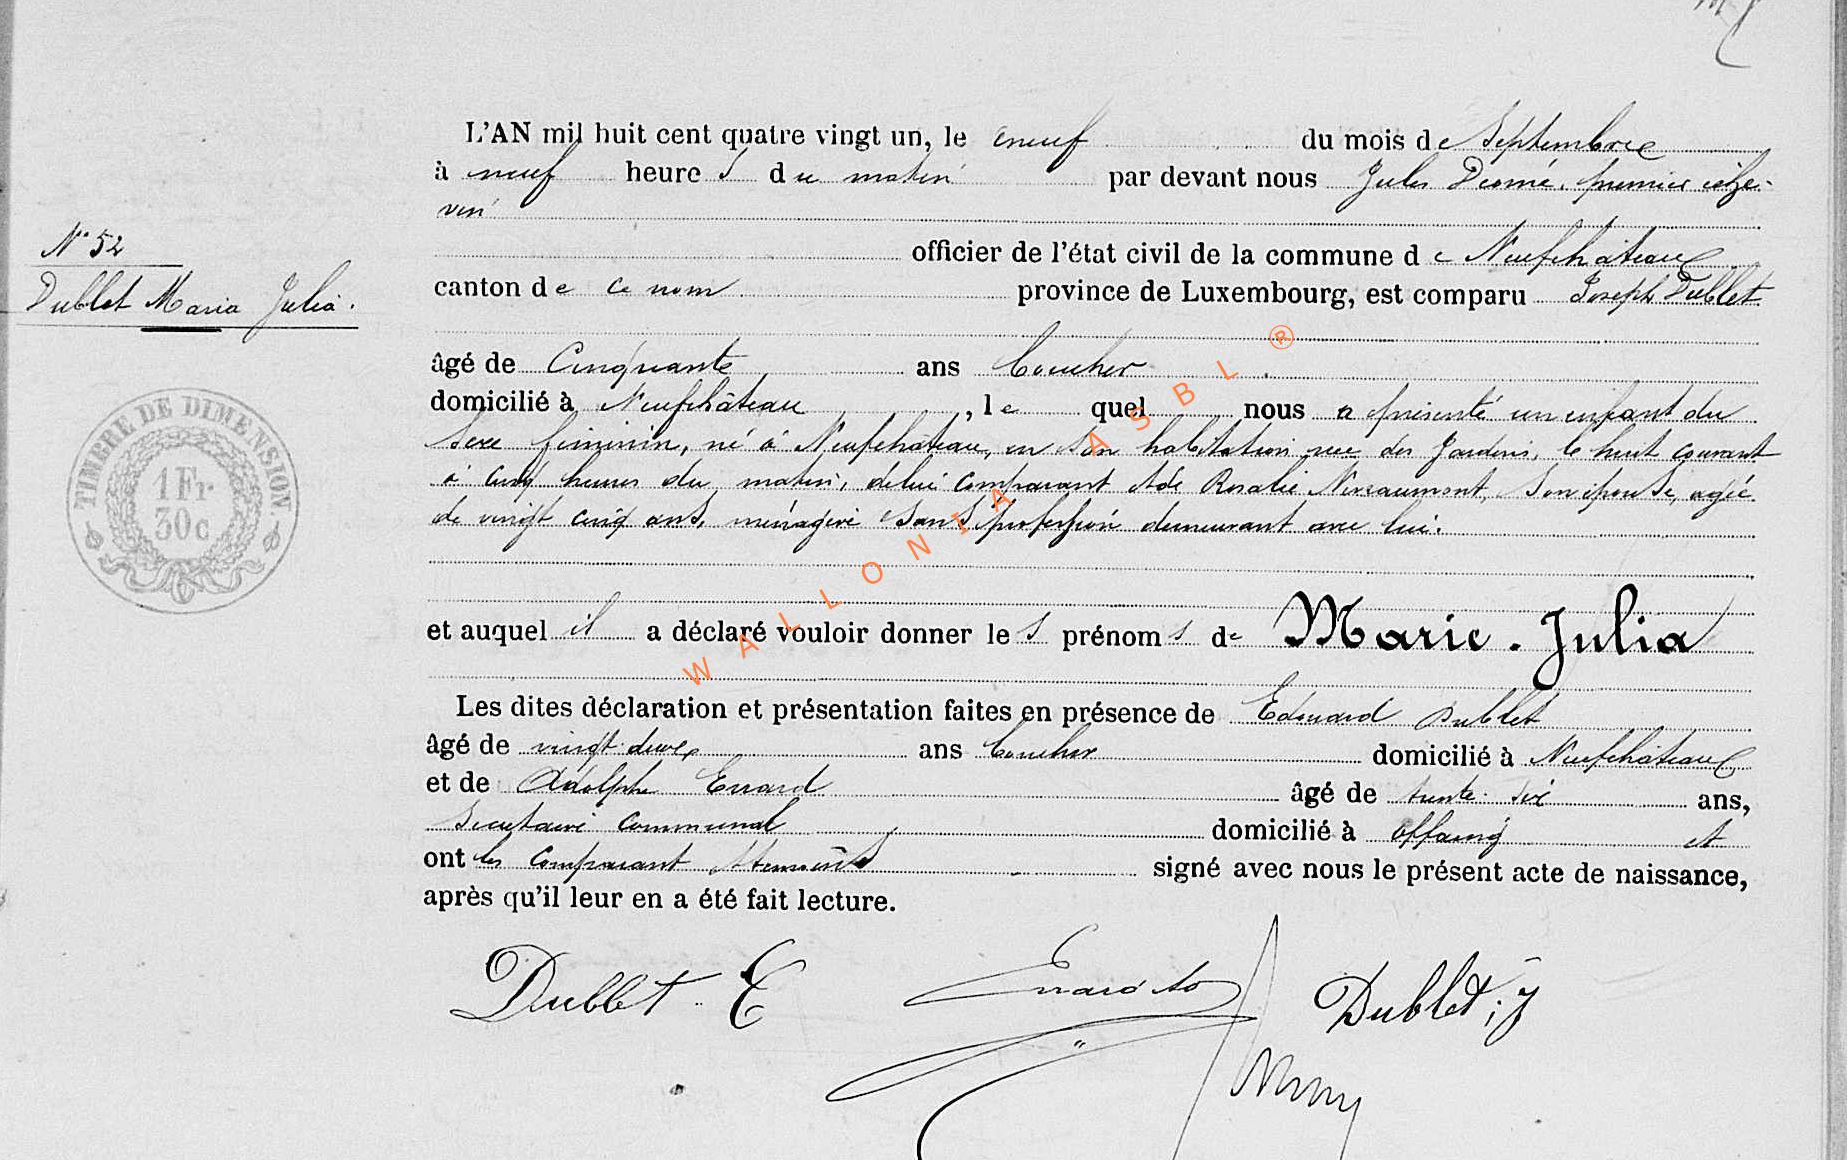 L'AN mil huit cent quatre vingt un, le neuf du mois de Septembre
à neuf heures du matin par devant nous Jules premier éche-
vin
N° 52
officier de l'état civil de la commune de Neufchâteau
Dublet Maria Julia.
canton de ce nom province de Luxembourg, est comparu Joseph Dublet
âgé de Cinquante ans boucher
domicilié à Neufchâteau, lequel nous a présenté un enfant du
sexe féminin, né à Neufchâteau, en son habitation rue des Jardins, le huit courant
à cinq heures du matin, de lui comparant et de Rosalie son épouse, agée
de vingt cinq ans, ménagère sans profession demeurant avec lui.
TIMBRE DE DIMENSION
1 Fr
30 c
et auquel il a déclaré vouloir donner les prénoms de Marie-Julia
Les dites déclaration et présentation faites en présence de Edouard Dublet
âgé de vingt-deux ans boucher domicilié à Neufchâteau
et de Adolphe Errard âgé de trente-six ans,
Secrétaire communal domicilié à Offaing et
ont les comparant et témoins signé avec nous le présent acte de naissance,
après qu'il leur en a été fait lecture.
Dublet E Errard Dublet, J
WALLONIA ASBL ®